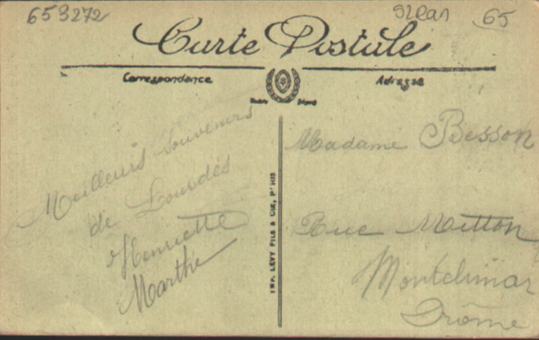 653272
65
Carte Postale
Correspondance
Adresse
Meilleurs Souvenirs
de Lourdes
Henriette
Marthe
IMP. LÉVY FILS & CIE, PARIS
Madame Besson
Rue Mitton
Montelimar
Drôme